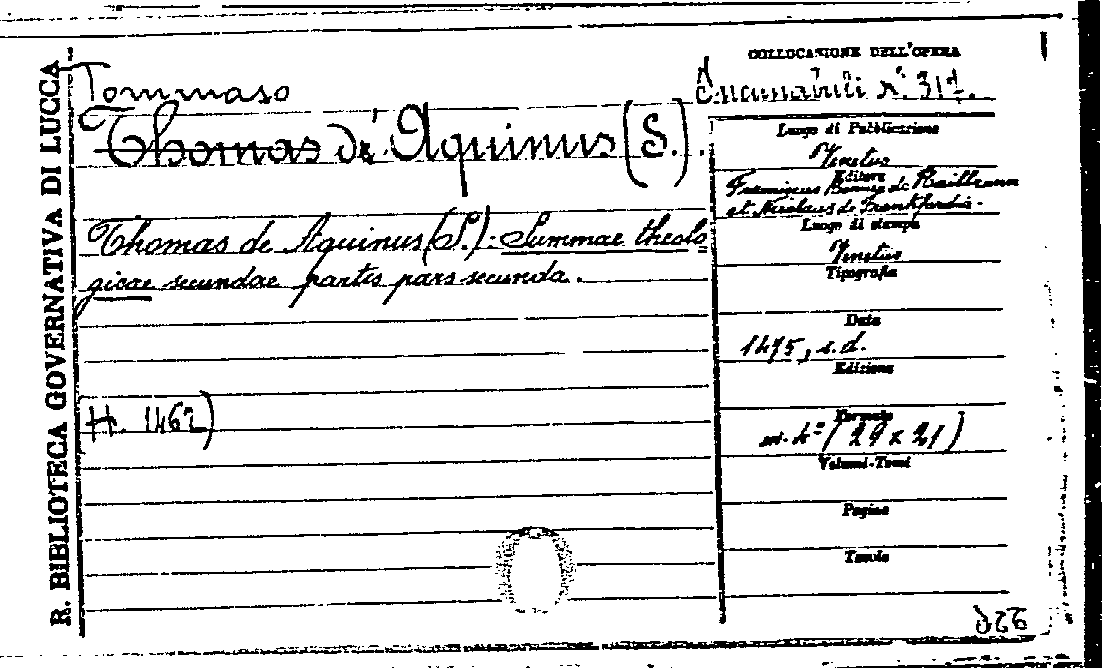 R. BIBLIOTECA GOVERNATIVA DI LUCCA
COLLOCAZIONE DELL'OPERA
Incunabili n. 317.
Tommaso
Thomas de Aquinus (S.).
Thomas de Aquinus (S.): Summae theolo
gicae secundae partis pars secunda.
(H. 1462)
Luogo di Pubblicazione
Venetus
Editore
Franciscus de Hailbrunn
et Nicolaus de Frankfordia.
Luogo di stampa
Venetus
Tipografia
Data
1475, s.d.
Edizione
Formato
in-4º (29 x 21)
Volumi-Tomi
Pagine
Tavole